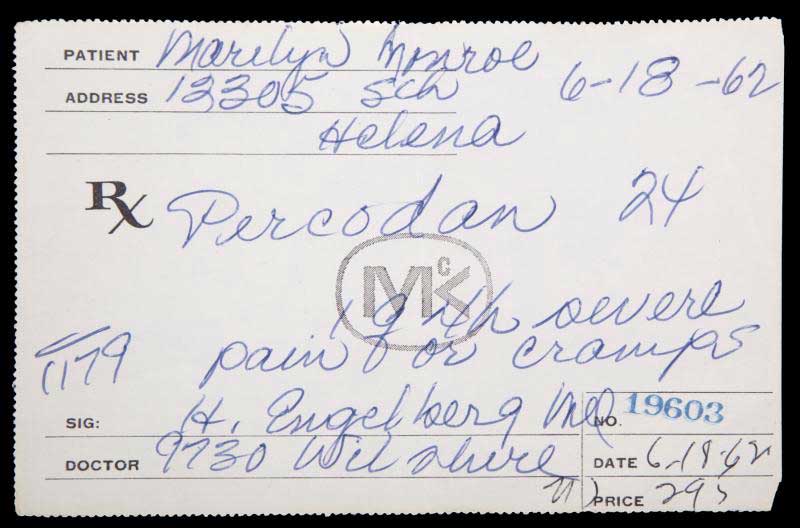 PATIENT Marilyn Monroe
ADDRESS 12305 5th 6-18-62
Helena
Rx Percodan 24
McK
1 q 4h severe
pain or cramps
1179
SIG: H. Engelberg MD NO. 19603
DOCTOR 9730 Wilshire DATE 6-18-62
PRICE 295